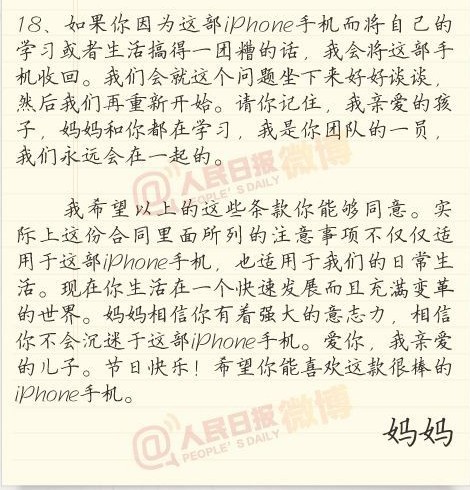 18、如果你因为这部iPhone手机而将自己的
学习或者生活搞得一团糟的话，我会将这部手
机收回。我们会就这个问题坐下来好好谈谈，
然后我们再重新开始。请你记住，我亲爱的孩
子，妈妈和你都在学习，我是你团队的一员，
我们永远会在一起的。
@人民日报微博
PEOPLE'S DAILY
我希望以上的这些条款你能够同意。实
际上这份合同里面所列的注意事项不仅仅适
用于这部iPhone手机，也适用于我们的日常生
活。现在你生活在一个快速发展而且充满变革
的世界。妈妈相信你有着强大的意志力，相信
你不会沉迷于这部iPhone手机。爱你，我亲爱
的儿子。节日快乐！希望你能喜欢这款很棒的
iPhone手机。
@人民日报微博
PEOPLE'S DAILY
妈妈